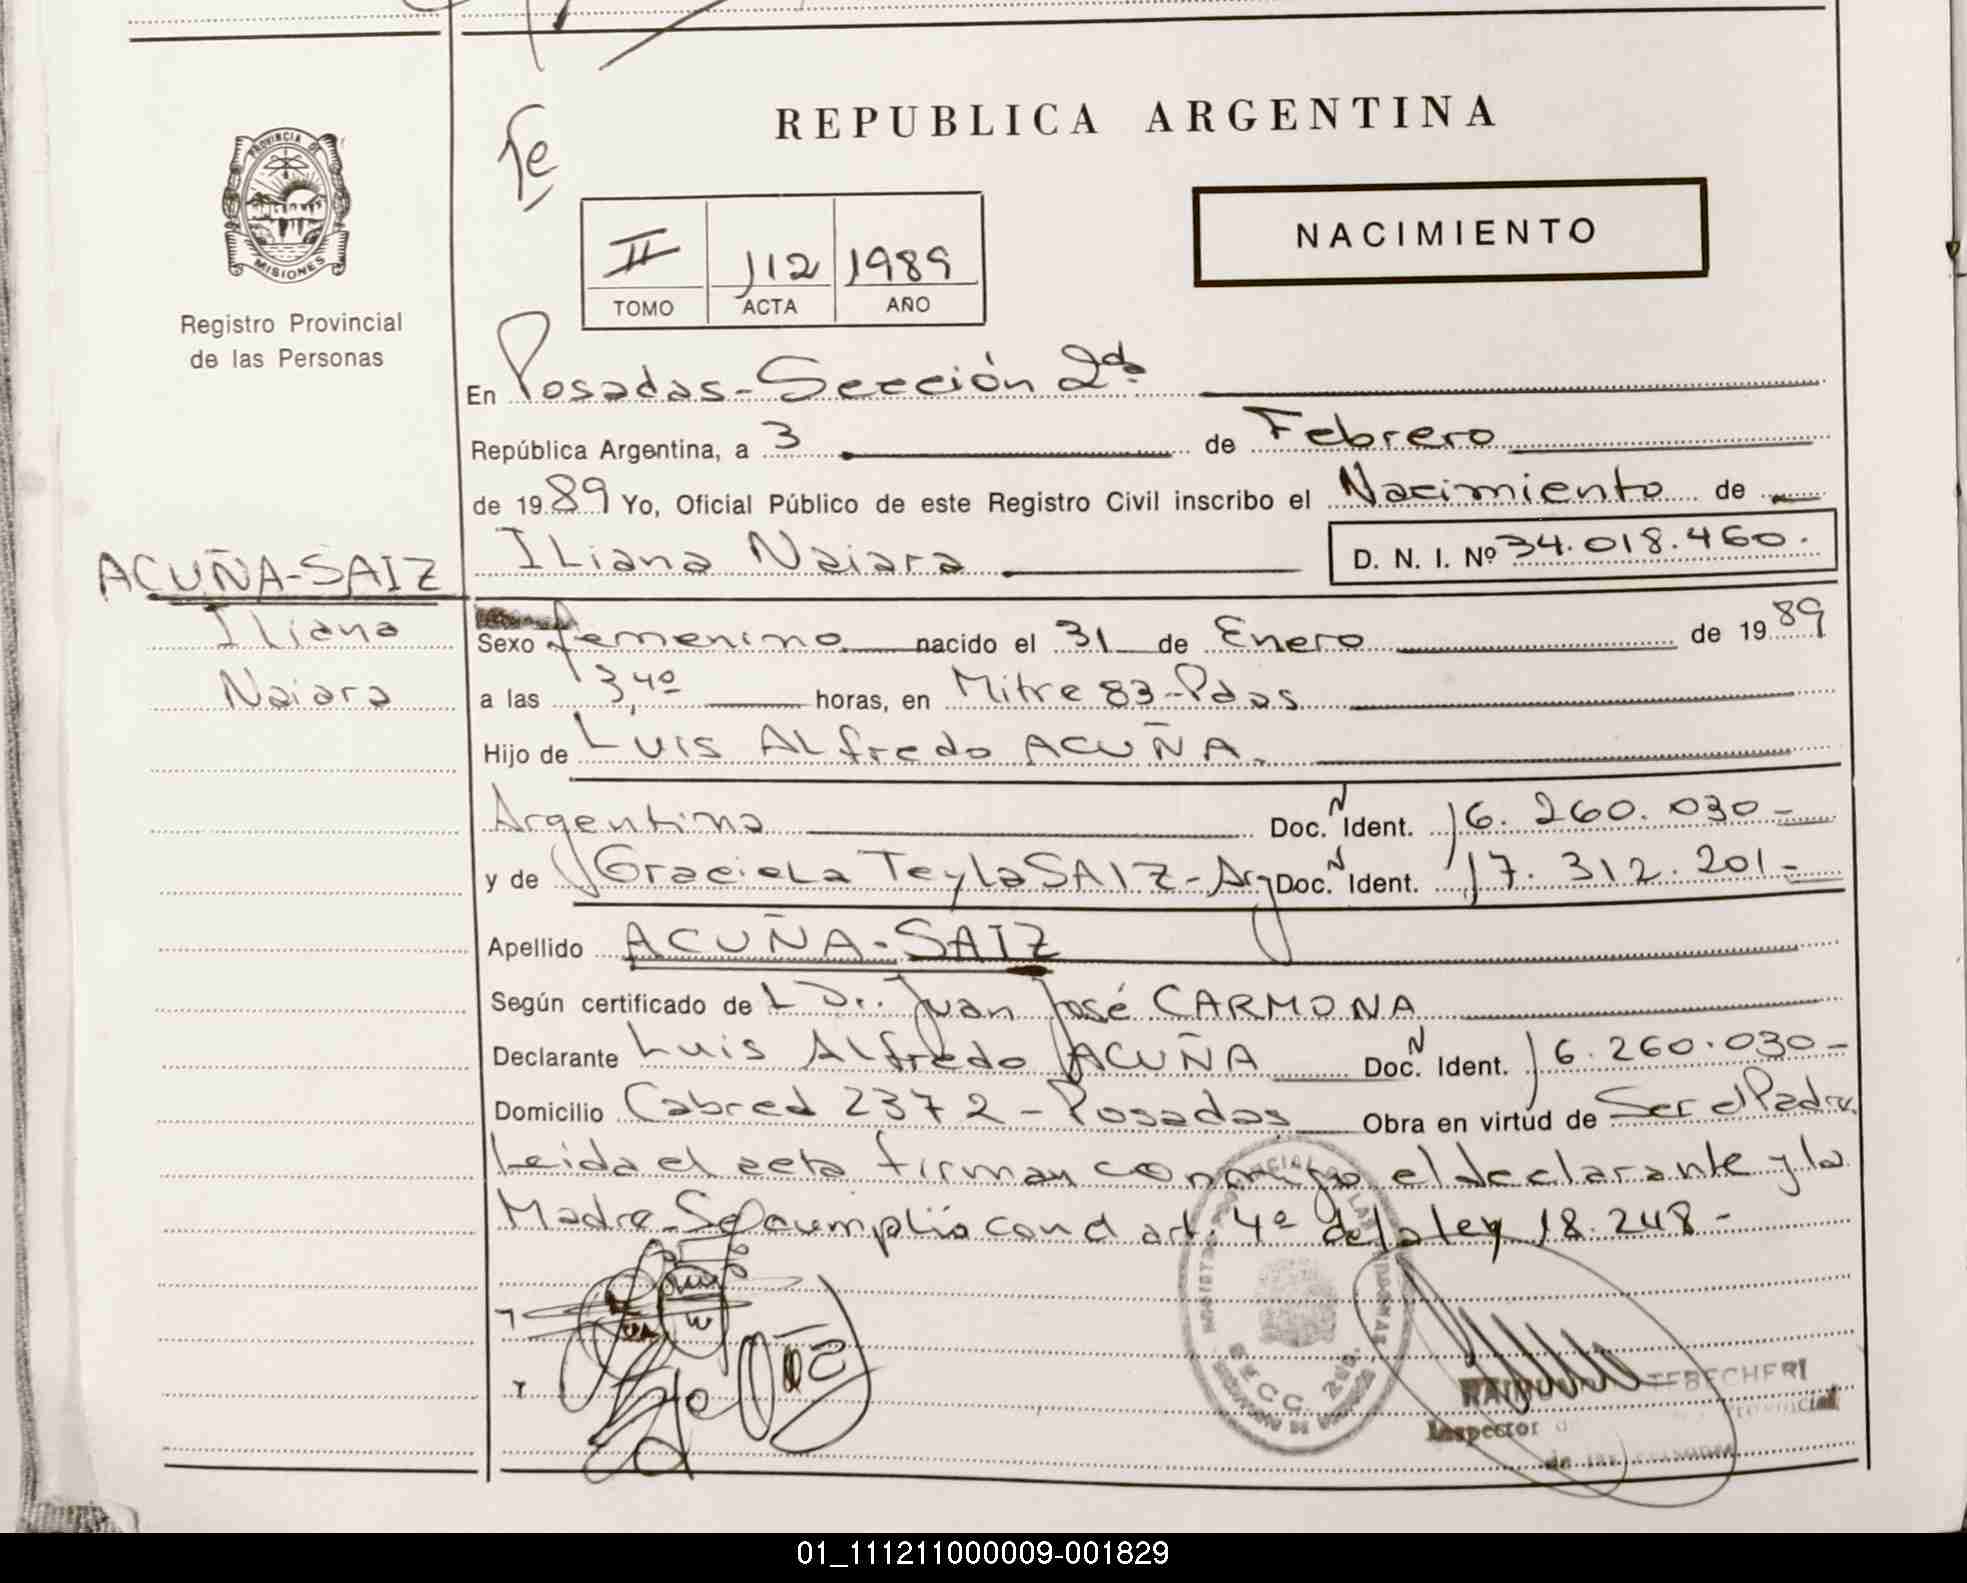 REPUBLICA ARGENTINA
Fe
PROVINCIA DE
MISIONES
Registro Provincial
de las Personas
NACIMIENTO
II 112 1989
TOMO ACTA AÑO
En Posadas-Sección 2da
República Argentina, a 3 de Febrero
de 1989 Yo, Oficial Público de este Registro Civil inscribo el Nacimiento de
ACUÑA-SAIZ
Iliana
Naiara
Iliana Naiara D. N. I. Nº 34.018.460.
Sexo femenino nacido el 31 de Enero de 1989
a las 3,40 horas, en Mitre 83-Pdas
Hijo de Luis Alfredo ACUÑA.
Argentino Doc. N Ident. 16.260.030-
y de Graciela Teyla SAIZ-Arg Doc. N Ident. 17.312.201-
Apellido ACUÑA-SAIZ
Según certificado de L Dr. Juan José CARMONA
Declarante Luis Alfredo ACUÑA Doc. N Ident. 16.260.030-
Domicilio Cabred 2372-Posadas Obra en virtud de Ser el Padre.
Leida el acta firman conmigo el declarante y la
Madre-Se cumplió con el art. 4º de la ley 18.248-
SECC. 2da.
TEBECHERI
Inspector
de las Personas
01_111211000009-001829